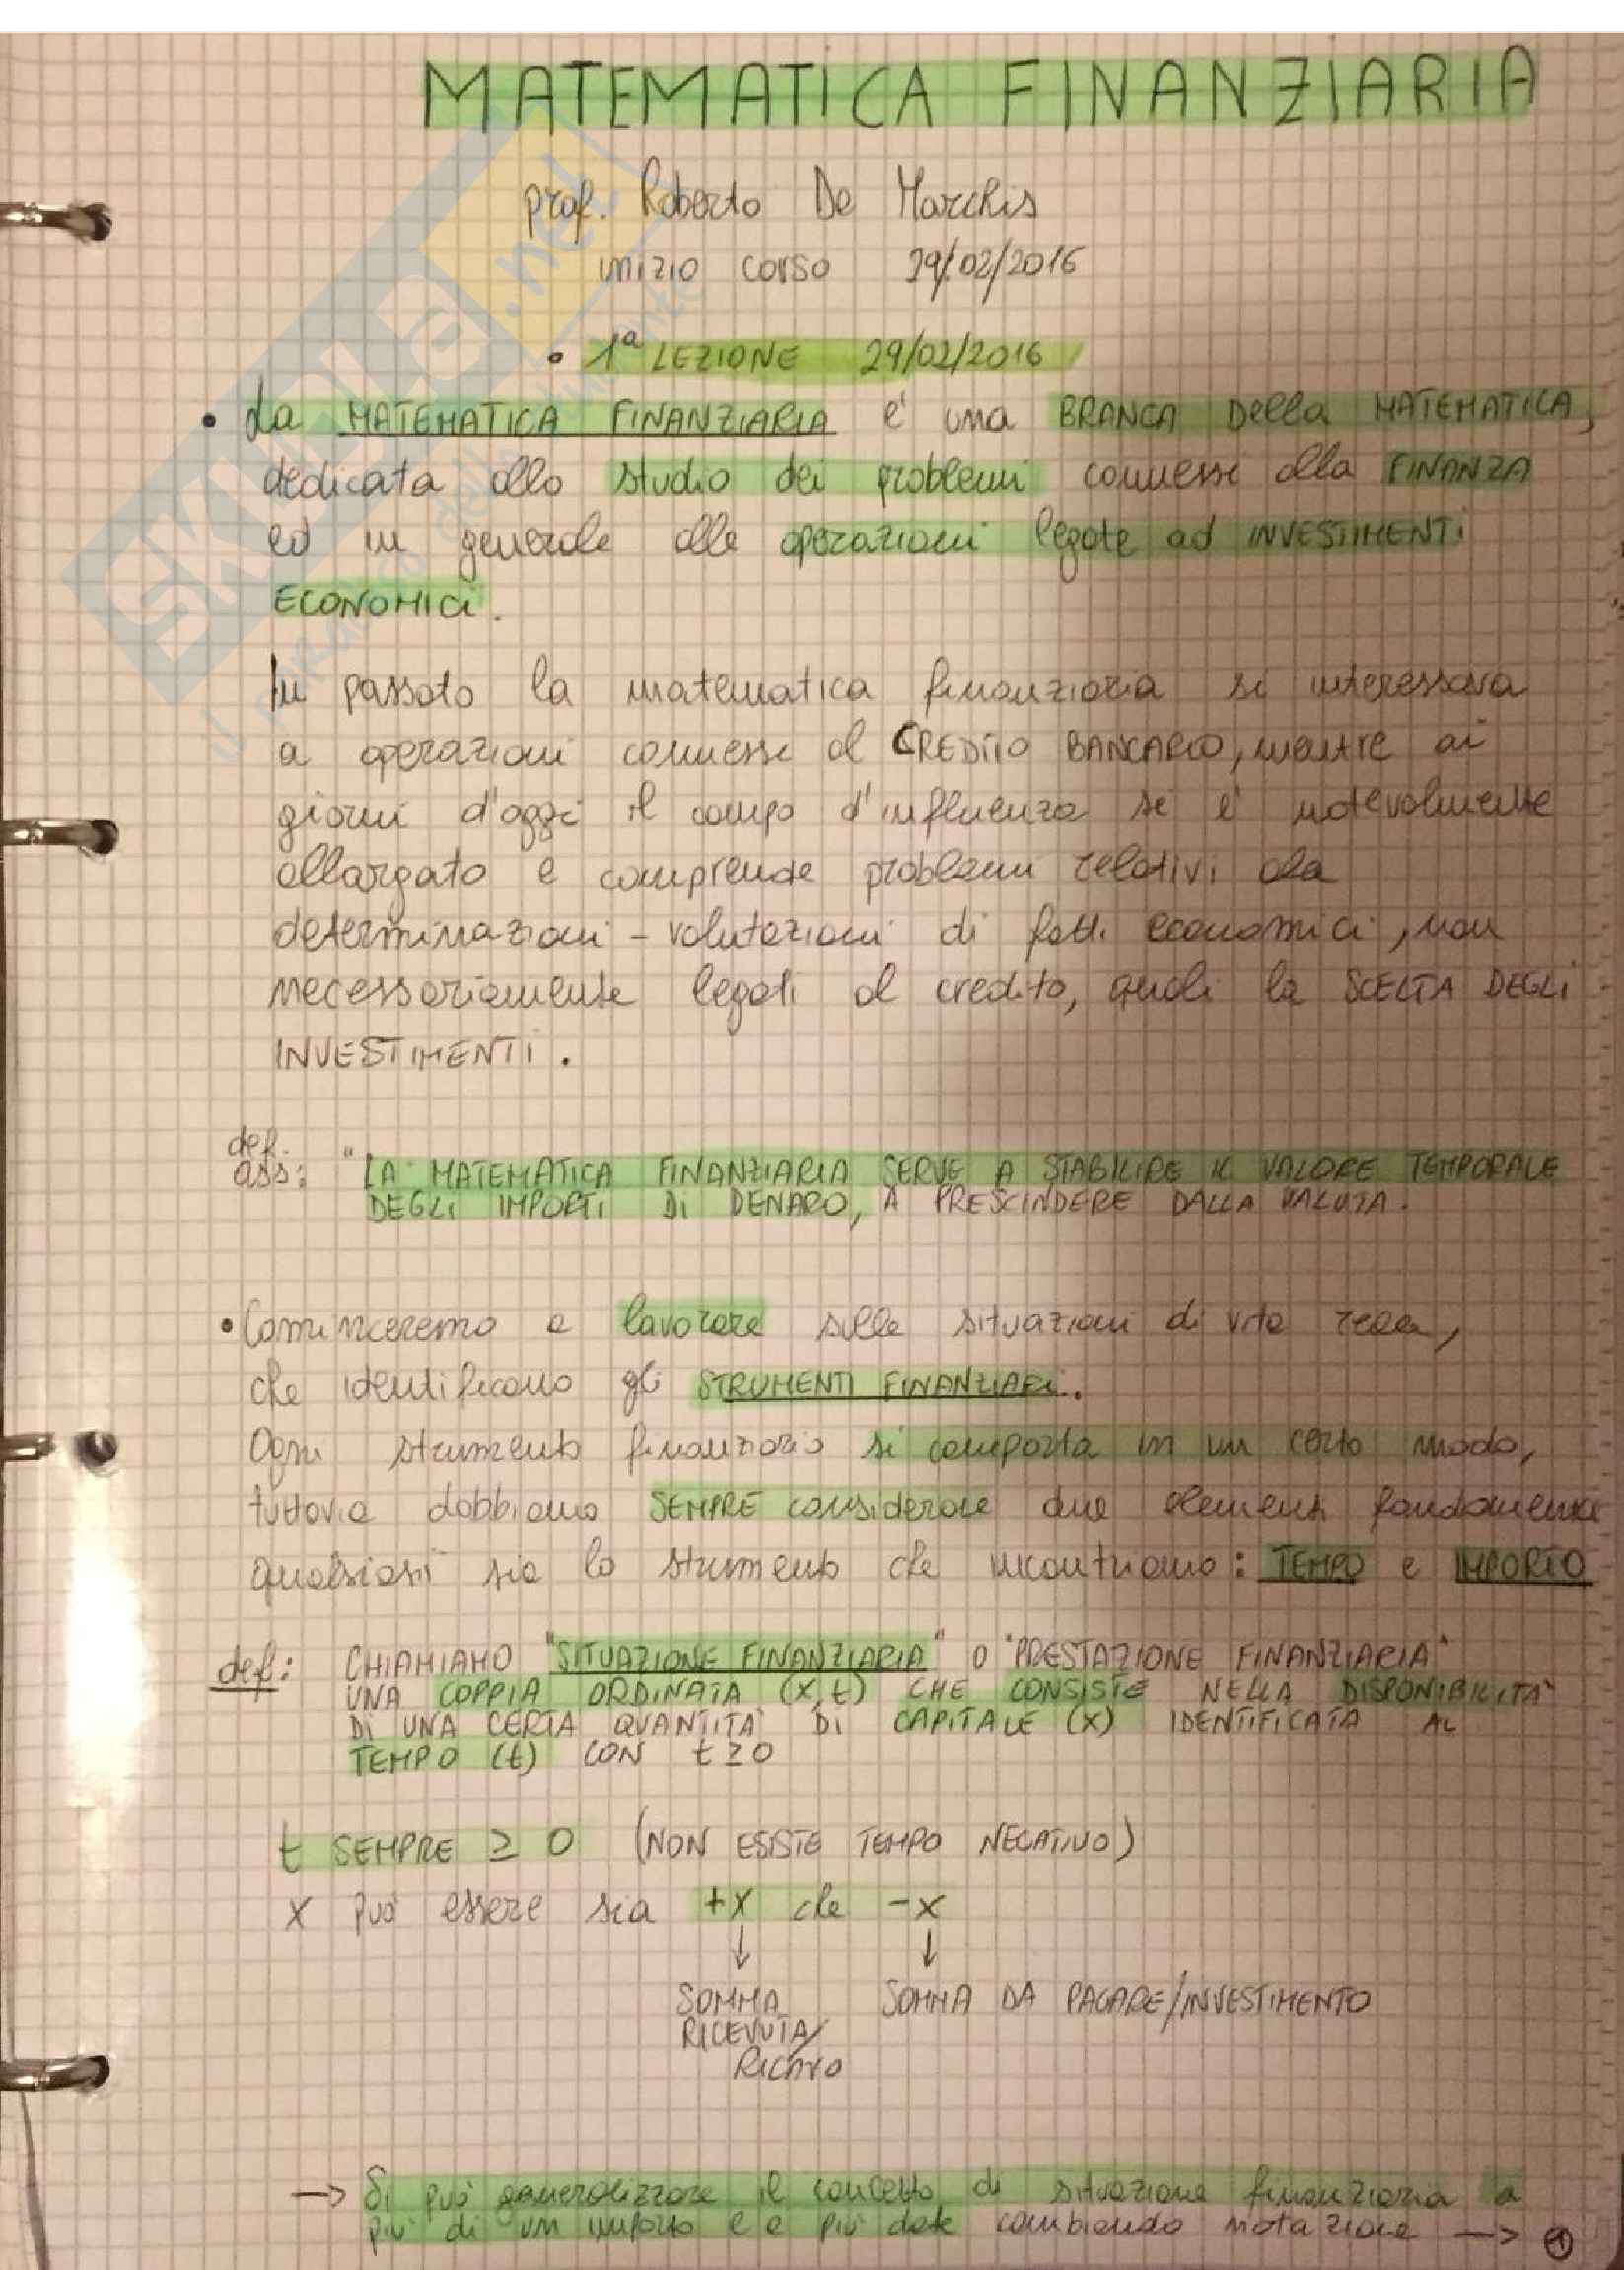 MATEMATICA FINANZIARIA
prof. Roberto De Marchis
inizio corso 29/02/2016
• 1ª LEZIONE 29/02/2016
• La MATEMATICA FINANZIARIA e' una BRANCA Della MATEMATICA,
dedicata allo studio dei problemi connessi alla FINANZA
ed in generale alle operazioni legate ad INVESTIMENTI
ECONOMICI.
In passato la matematica finanziaria si interessava
a operazioni connesse al CREDITO BANCARIO, mentre ai
giorni d'oggi il campo d'influenza si e' notevolmente
allargato e comprende problemi relativi alla
determinazioni - valutazioni di fatti economici, non
necessariamente legati al credito, quali la SCELTA DEGLI
INVESTIMENTI.
def.
ass: "LA MATEMATICA FINANZIARIA SERVE A STABILIRE IL VALORE TEMPORALE
DEGLI IMPORTI DI DENARO, A PRESCINDERE DALLA VALUTA.
• Cominceremo a lavorare sulle situazioni di vita reale,
che identificano gli STRUMENTI FINANZIARI.
Ogni strumento finanziario si comporta in un certo modo,
tuttavia dobbiamo SEMPRE considerare due elementi fondamentali
qualsiasi sia lo strumento che incontriamo: TEMPO e IMPORTO
def: CHIAMIAMO "SITUAZIONE FINANZIARIA" O "PRESTAZIONE FINANZIARIA"
UNA COPPIA ORDINATA (x, t) CHE CONSISTE NELLA DISPONIBILITA'
DI UNA CERTA QUANTITA' DI CAPITALE (x) IDENTIFICATA AL
TEMPO (t) CON t ≥ 0
t SEMPRE ≥ 0 (NON ESISTE TEMPO NEGATIVO)
x puo' essere sia +x che -x
↓ ↓
SOMMA SOMMA DA PAGARE/INVESTIMENTO
RICEVUTA/
RICAVO
→ Si puo' generalizzare il concetto di situazione finanziaria a
piu' di un importo e a piu' date cambiando notazione → ①
SKUOLA.net